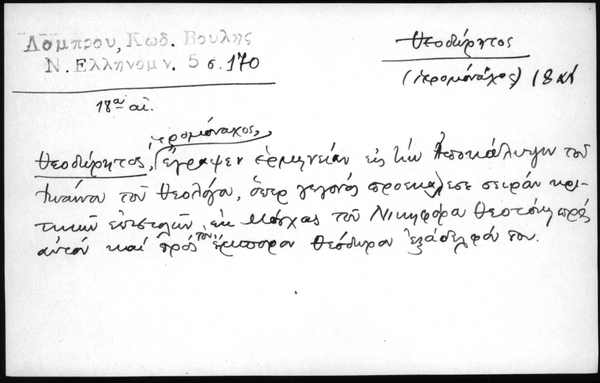 Λάμπρου, Κωδ. Βουλῆς
Ν. Ελληνομν. 5 σ. 170
Θεοδώρητος
(ἱερομόναχος) 18 αἰ
18ος αἰ.
ἱερομόναχος,
Θεοδώρητος, ἔγραψεν ἑρμηνείαν εἰς τὴν Ἀποκάλυψιν τοῦ
Ἰωάννου τοῦ Θεολόγου, ὅπερ γεγονὸς προεκάλεσε σειρὰν κρι-
τικῶν ἐπιστολῶν, ἐκ Μόσχας τοῦ Νικηφόρου Θεοτόκη πρὸς
αὐτὸν καὶ πρὸς τὸν ἔμπορον Θεόδωρον ἐξάδελφόν του.